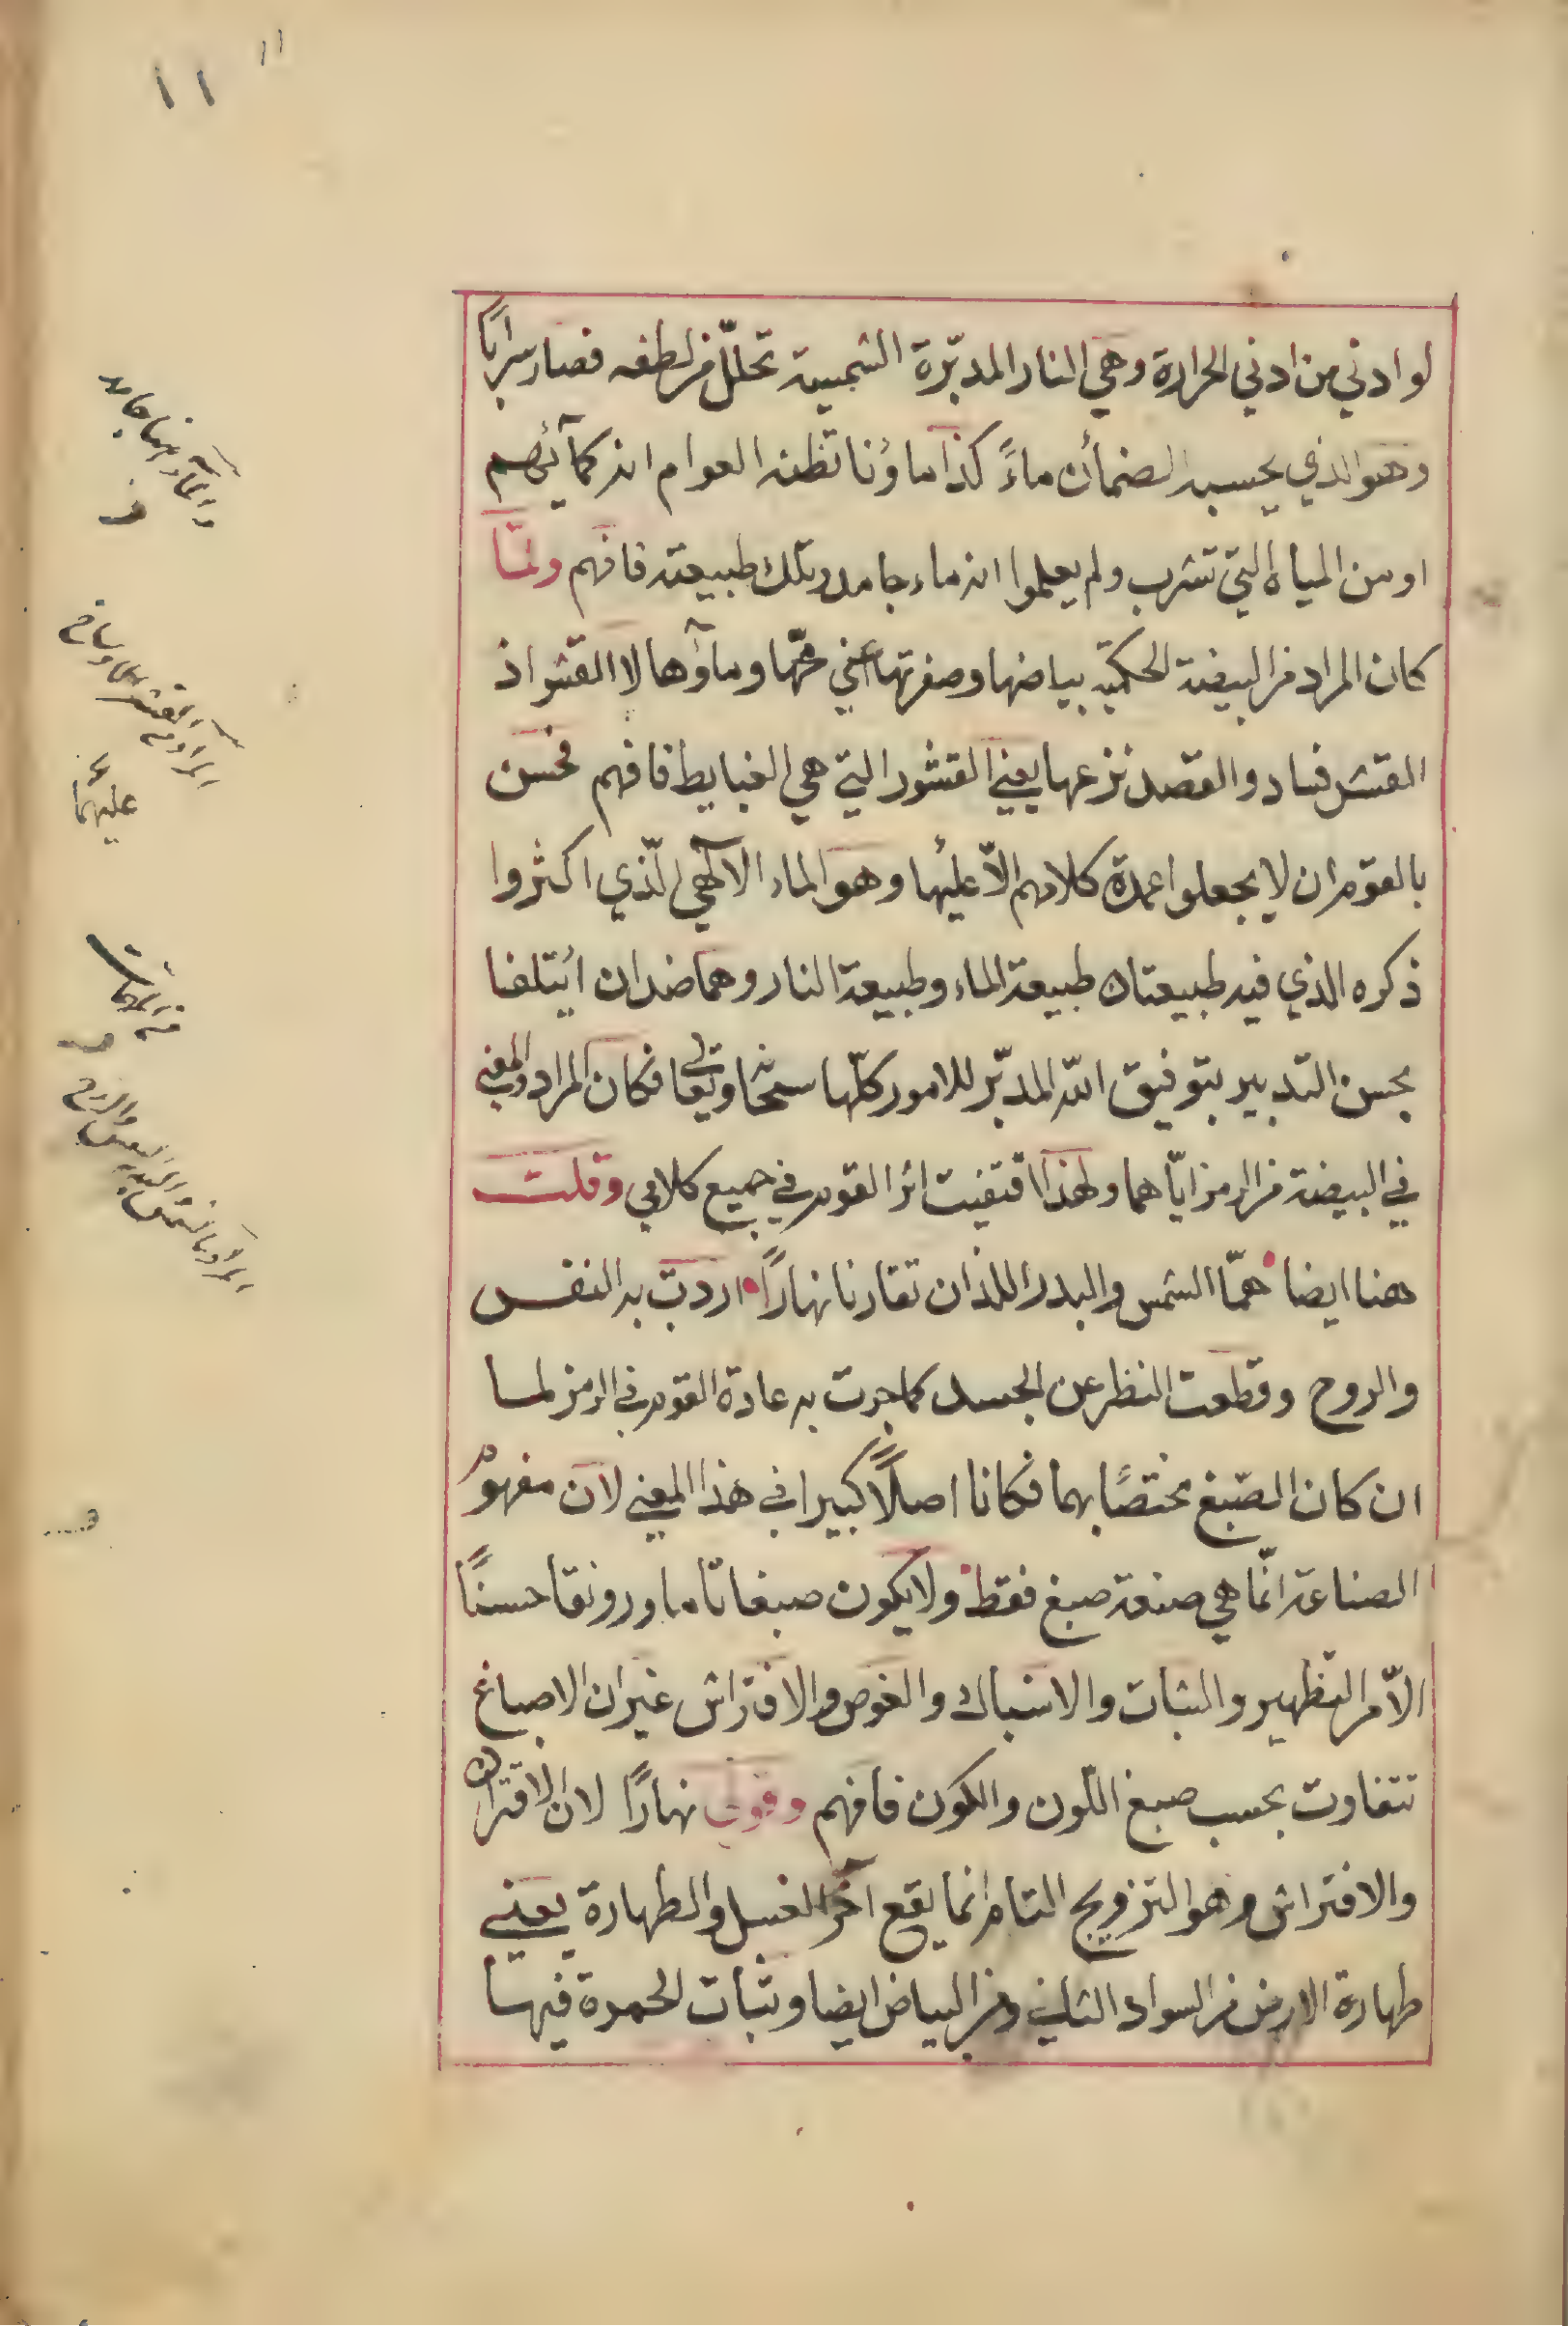 ١١
١١
لو ادني من ادني الحرارة وهي النار المدبّرة الشمسية تحلّل من لطفه فصار سرابًا
وهو الذي يحسبه الضمأن ماءً كذا ماؤنا تظنه العوام انه كمآئهم
او من المياه التي تشرب ولم يعلموا انه ماء جامد وتلك طبيعته فافهم ولمّا
كان المراد من البيضة الحكميّة بياضها وصفرتها اعني محّها وماؤها لا القشو اذ
القشر فساد والقصد نزعها يعني القشور التي هي الغبايط فافهم فحسن
بالقوم ان لا يجعلوا عمدة كلامهم الاّ عليها وهو الماء الآلهي الّذي اكثروا
ذكره الذي فيه طبيعتان طبيعة الماء وطبيعة النار وهما ضدان ائيتلفا
بحسن التدبير بتوفيق الله المدبّر للامور كلّها سبحانه وتعالى فكان المراد والمعني
في البيضة من الرمز ايّاهما ولهذا اقتفيت اثر القوم في جميع كلامي وقلت
هنا ايضا همّا الشمس والبدر اللذان تقارنا نهارًا اردت به النفس
والروح وقطعت النظر عن الجسد كما جرت به عادة القوم في الرمز لما
ان كان الصّبغ مختصًا بهما فكانا اصلًا كبيرا في هذا المعني لان مفهوم
الصناعة انّما هي صنعة صبغ فقط ولا يكون صبغا تاما ورونقا حسنًا
الاّ من التّطهير والثبات والانسباك والغوص والافتراش غير ان الاصباغ
تتفاوت بحسب صبغ اللّون والكون فافهم وقولي نهارًا لان الاقتران
والافتراش وهو التزويج التام انما يقع آخر الغسل والطهارة يعني
طهارة الارض من السواد الثاني ومن البياض ايضا وثبات الحمرة فيها
عليهما